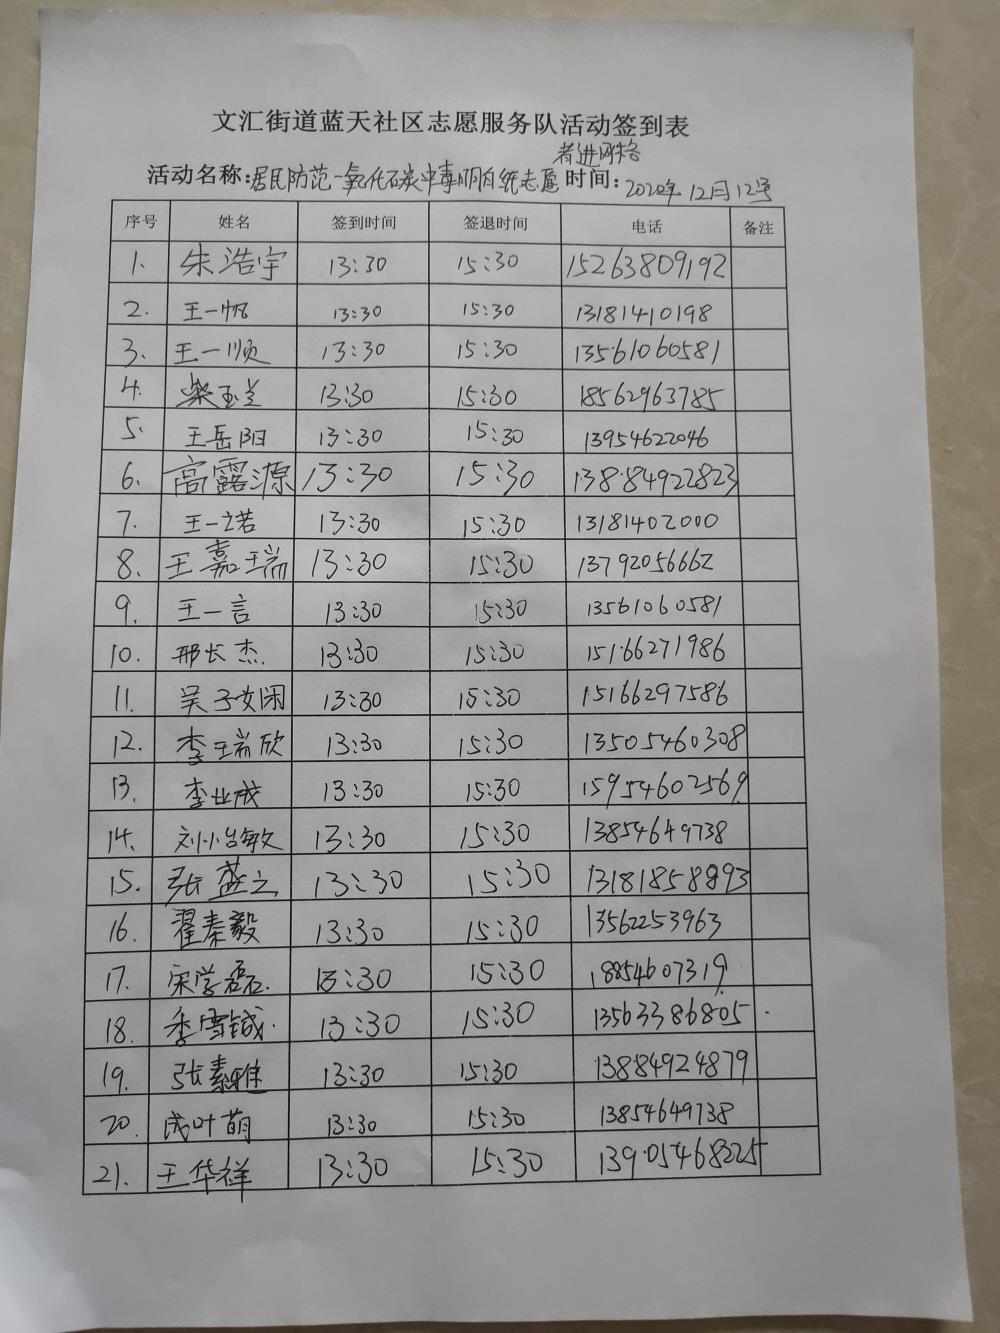 文汇街道蓝天社区志愿服务队活动签到表
者进网格
活动名称:居民防范一氧化石炭中毒明白纸志愿 时间:2020年12月12号
序号 姓名 签到时间 签退时间 电话 备注
1. 朱浩宇 13:30 15:30 15263809192
2. 王一帆 13:30 15:30 13181410198
3. 王一顺 13:30 15:30 13561060581
4. 柴玉兰 13:30 15:30 18562963785
5. 王岳阳 13:30 15:30 13954622046
6. 高露源 13:30 15:30 13884922823
7. 王一诺 13:30 15:30 13181402000
8. 王嘉瑞 13:30 15:30 13792056662
9. 王一言 13:30 15:30 13561060581
10. 邢长杰 13:30 15:30 15166271986
11. 吴子娴 13:30 15:30 15166297586
12. 李瑞欣 13:30 15:30 13505460308
13. 李业成 13:30 15:30 15954602569
14. 刘怡敏 13:30 15:30 13854649738
15. 张益之 13:30 15:30 13181858893
16. 翟秦毅 13:30 15:30 13562253963
17. 宋学磊 13:30 15:30 18854607319
18. 季雪铖 13:30 15:30 13563386805
19. 张素雅 13:30 15:30 13884924879
20. 成叶萌 13:30 15:30 13854649738
21. 王华祥 13:30 15:30 13905468225